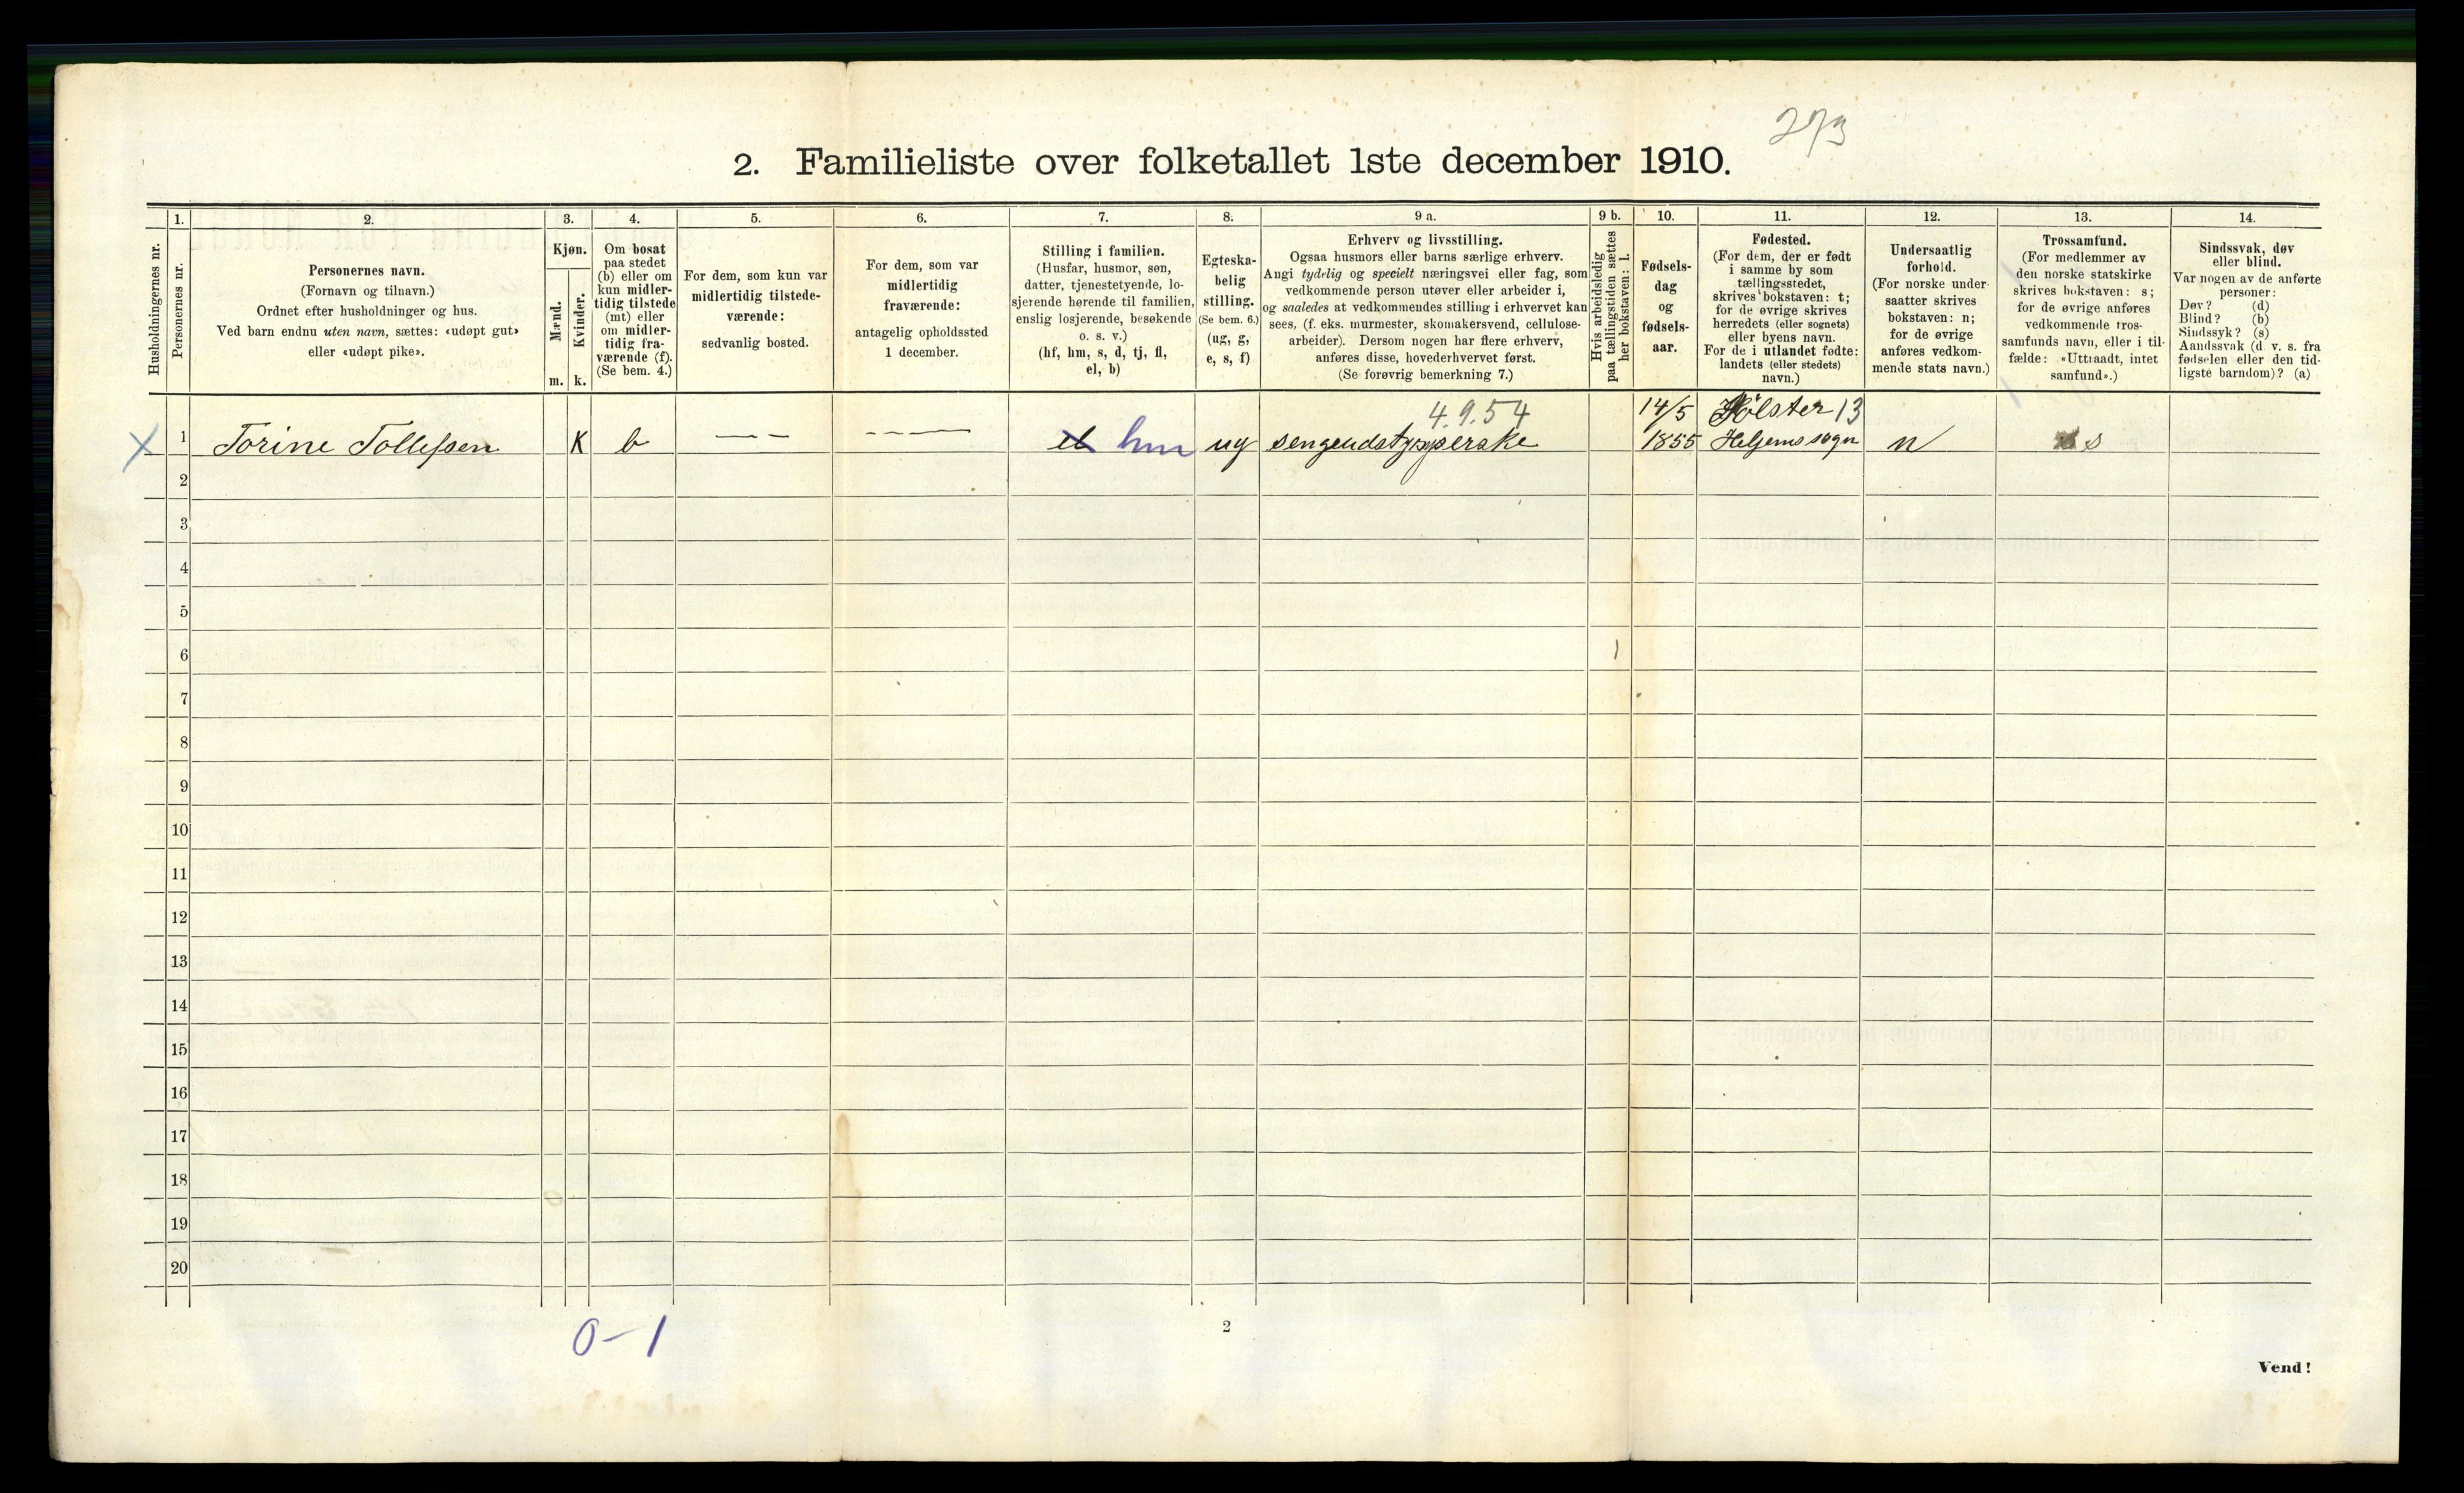 273
2. Familieliste over folketallet 1ste december 1910.
Husholdningernes nr.
1.
Personernes nr.
2.
Personernes navn.
(Fornavn og tilnavn.)
Ordnet efter husholdninger og hus.
Ved barn endnu uten navn, sættes: «udøpt gut»
eller «udøpt pike».
3.
Kjøn.
Mænd.
Kvinder.
m. k.
4.
Om bosat
paa stedet
(b) eller om
kun midler-
tidig tilstede
(mt) eller
om midler-
tidig fra-
værende (f).
(Se bem. 4.)
5.
For dem, som kun var
midlertidig tilstede-
værende:
sedvanlig bosted.
6.
For dem, som var
midlertidig
fraværende:
antagelig opholdssted
1 december.
7.
Stilling i familien.
(Husfar, husmor, søn,
datter, tjenestetyende, lo-
sjerende hørende til familien,
enslig losjerende, besøkende
o. s. v.)
(hf, hm, s, d, tj, fl,
el, b)
8.
Egteska-
belig
stilling.
(Se bem. 6.)
(ug, g,
e, s, f)
9 a.
Erhverv og livsstilling.
Ogsaa husmors eller barns særlige erhverv.
Angi tydelig og specielt næringsvei eller fag, som
vedkommende person utøver eller arbeider i,
og saaledes at vedkommendes stilling i erhvervet kan
sees, (f. eks. murmester, skomakersvend, cellulose-
arbeider). Dersom nogen har flere erhverv,
anføres disse, hovederhvervet først.
(Se forøvrig bemerkning 7.)
9 b.
Hvis arbeidsledig
paa tællingstiden sættes
her bokstaven: l.
10.
Fødsels-
dag
og
fødsels-
aar.
11.
Fødested.
(For dem, der er født
i samme by som
tællingsstedet,
skrives bokstaven: t;
for de øvrige skrives
herredets (eller sognets)
eller byens navn.
For de i utlandet fødte:
landets (eller stedets)
navn.)
12.
Undersaatlig
forhold.
(For norske under-
saatter skrives
bokstaven: n;
for de øvrige
anføres vedkom-
mende stats navn.)
13.
Trossamfund.
(For medlemmer av
den norske statskirke
skrives bokstaven: s;
for de øvrige anføres
vedkommende tros-
samfunds navn, eller i til-
fælde: «Uttraadt, intet
samfund».)
14.
Sindssvak, døv
eller blind.
Var nogen av de anførte
personer:
Døv? (d)
Blind? (b)
Sindssyk? (s)
Aandssvak (d. v. s. fra
fødselen eller den tid-
ligste barndom)? (a)
4.9.54 14/5 Hölster 13
X 1 Torine Tollefsen K b — — — — — el hm ug sengeudstyrsyerske 1855 n s
2
3
4
5
6
7
8
9
10
11
12
13
14
15
16
17
18
19
20
0-1
2
Vend!